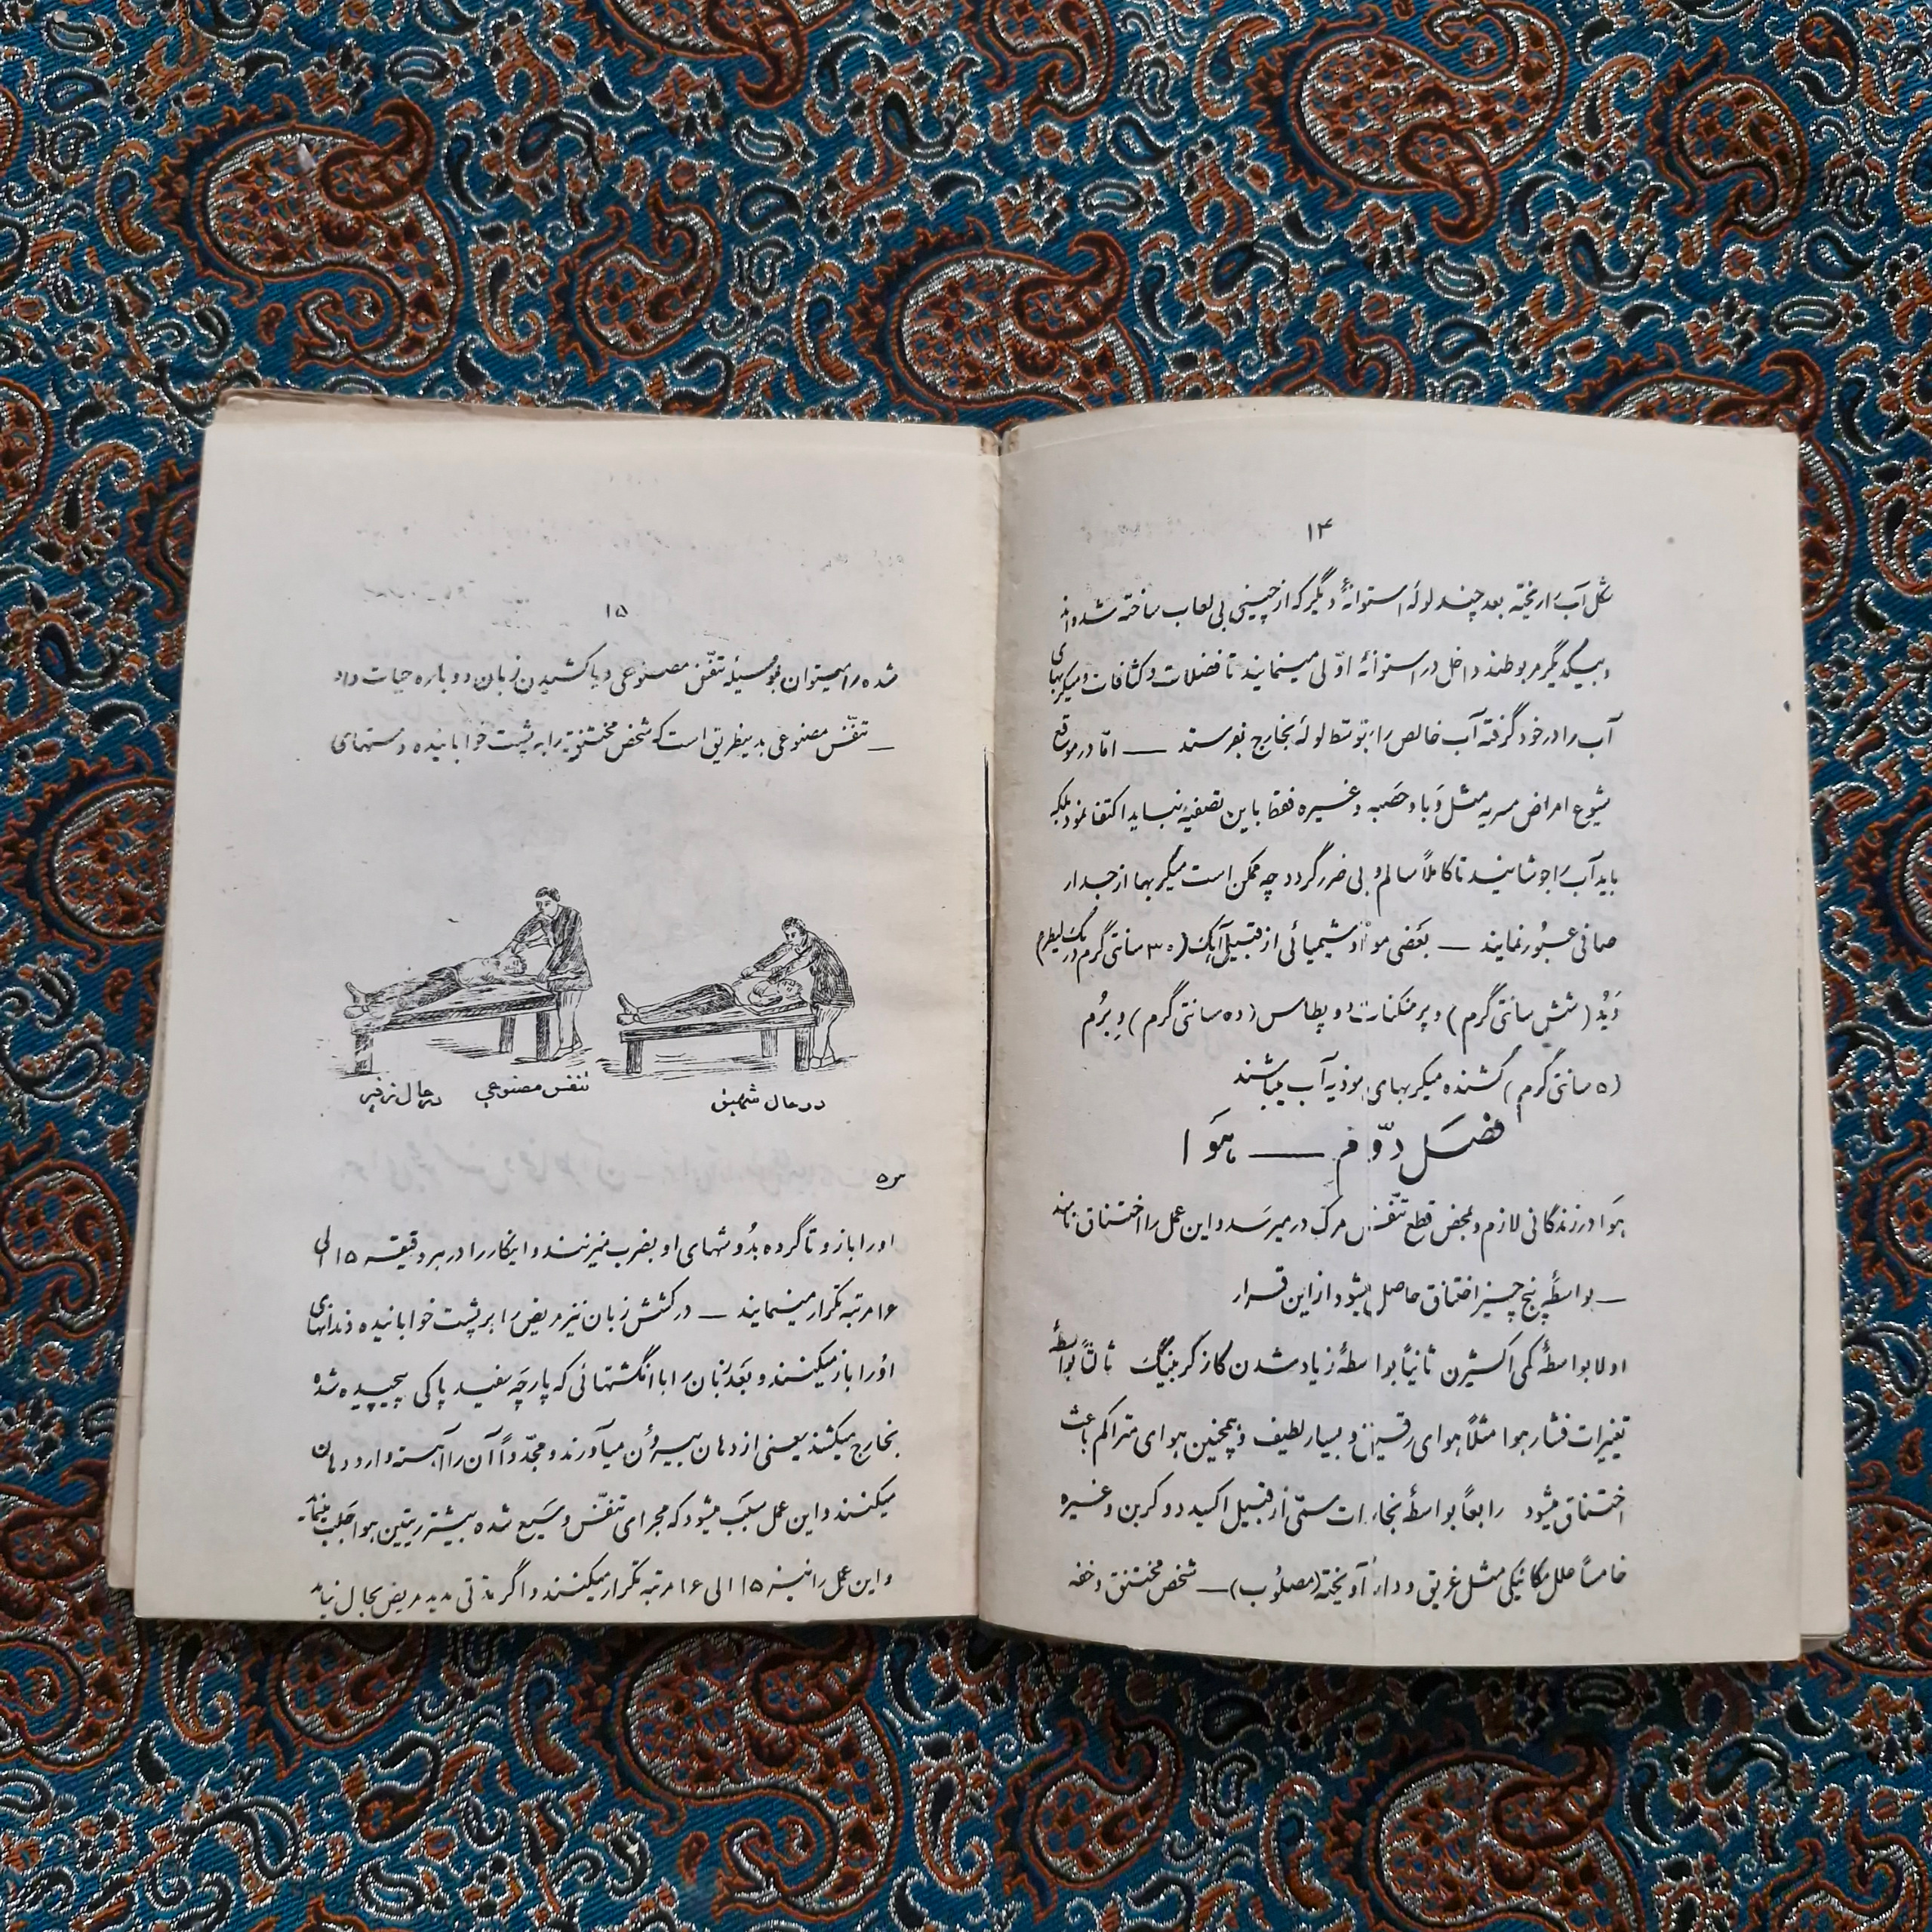 ۱۴
شکل آب را ریخته بعد چند لولهٔ استوانهٔ دیگر که از چینی بی لعاب ساخته شده اند
و بیکدیگر مربوطند داخل در استوانهٔ اوّلی مینمایند تا فضلات و کثافات و میکربهای
آب را در خود گرفته آب خالص را بتوسّط لوله بخارج بفرستد — امّا در موقع
شیوع امراض مسریه مثل وَبا و حَصبه و غیره فقط باین تصفیه نباید اکتفا نمود بلکه
باید آب را جوشانید تا کاملاً سالم و بی ضرر گردد چه ممکن است میکربها از جدار
صافی عبُور نمایند — بعَضی موادّ شیمیائی از قبیل آهک (۳۰ سانتی گرم در یک لیطر)
و یُد (شش سانتی گرم) و پرمنکنات دو پطاس (ده سانتی گرم) و برُم
(۵ سانتی گرم) کشنده میکربهای موذیه آب میباشند
فصَل دوّم — هوَا
هوَا در زندگانی لازم و بمحض قطع تنفّس مرگ در میرسَد و این عمل را اختناق نامند
— بواسطهٔ پنج چیز اختناق حاصل میشود از این قرار
اولا بواسطهٔ کمی اکسیژن ثانیاً بواسطهٔ زیاد شدن کاز کربنیگ ثالثاً بواسطهٔ
تغییرات فشار هوا مثلاً هوای رقیق و بسیار لطیف و همچنین هوای متراکم باعث
اختناق میشود رابعاً بواسطهٔ بخارات سمّی از قبیل اکسید دو کربن و غیره
خامساً علل مکانیکی مثل غریق و دار آویخته (مصلوُب) — شخص مختنق و خفه
۱۵
شده را میتوان بوسیلهٔ تنفّس مصنوعی و یا کشیدن زبان دوباره حیات داد
— تنفّس مصنوعی بدینطریق است که شخص مختنق را به پشت خوابانیده دستهای
در حال شهیق
تنفس مصنوعی
در حال زفیر
او را باز و تا کرده بدُوشهای او بضرب میزنند و اینکار را در هر دقیقه ۱۵ الی
۱۶ مرتبه تکرار مینمایند — در کشش زبان نیز مریض را بر پشت خوابانیده دندانهای
اوُ را باز میکنند و بعَد زبان را با انگشتهائی که پارچهٔ سفید پاکی پیچیده شده
بخارج میکشند یعنی از دهان بیروُن میآورند و مجدّداً آن را آهسته وارد دهان
میکنند و این عمل سبَب میشود که مجرای تنفّس وسیَع شده بیشتر ریتین هوا جلب مینماید
و این عمل را نیز ۱۵ الی ۱۶ مرتبه تکرار میکنند و اگر مدّتی مدید مریض بحال نیاید